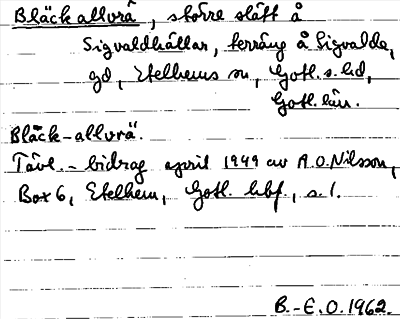 Bläckallvrå, större slätt å
Sigvaldhällar, terräng å Sigvalde,
gd, Etelhems sn, Gotl. s. hd,
Gotl. län.
Bläck-allvrä.
Tävl.-bidrag april 1949 av A.O.Nilsson,
Box 6, Etelhem, Gotl. hbf, s. 1.
B.-E.O.1962.